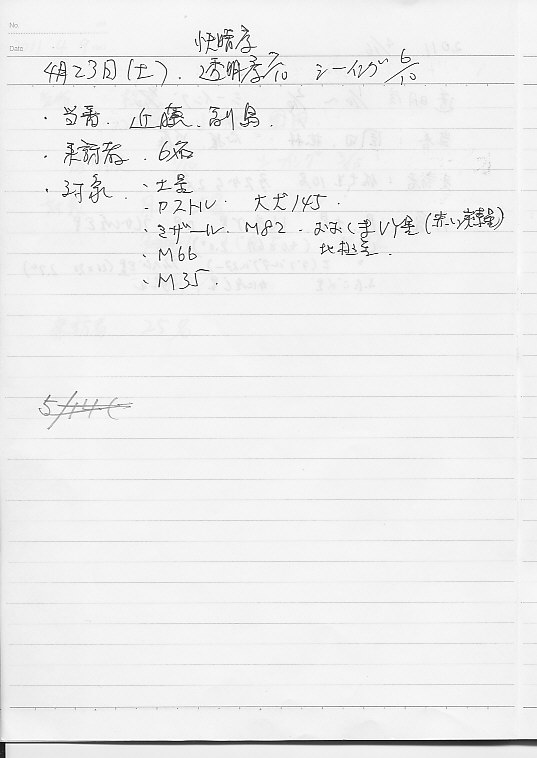 No.
Date
快晴度
4月23日(土). 透明度7/10 シーイング6/10
・当番. 近藤. 副島.
・来訪者. 6名
・対象. ・土星
・カストル. 大犬145.
・ミザール. M82. おおくまVY星(赤い炭素星)
・M66 北極星.
・M35.